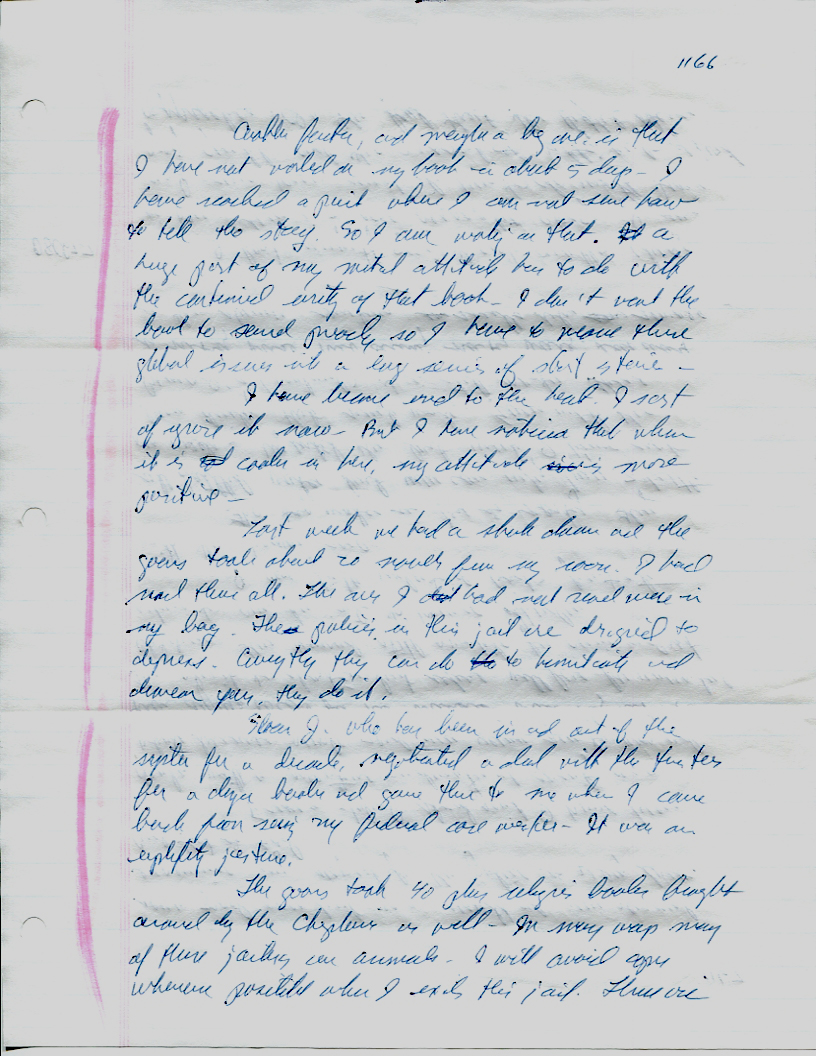 1166
Another factor, and maybe a big one, is that
I have not worked on my book in about 5 days - I
have reached a point where I am not sure how
to tell the story. So I am working on that. a
huge part of my mental attitude has to do with
the continued of that book - I don't want the
book to sound preachy so I have to weave these
global issues into a long series of short stories -
I have become used to the heat. I sort
of ignore it now - But I have noticed that when
it is cooler in here, my attitude is more
positive -
Last week we had a shake down and the
goons took about 20 novels from my room. I had
read them all. The ones I had not read were in
my bag. The policies in this jail are designed to
depress. Everything they can do to humiliate and
demean you, they do it.
J. who has been in and out of the
system for a decade, negotiated a deal with the
for a dozen books and gave them to me when I came
back from seeing my federal case worker - It was an
gesture.
The goons took 40 plus religious books brought
around by the Chaplain as well - In many ways many
of these jailers are animals - I will avoid cops
wherever possible when I exit this jail.